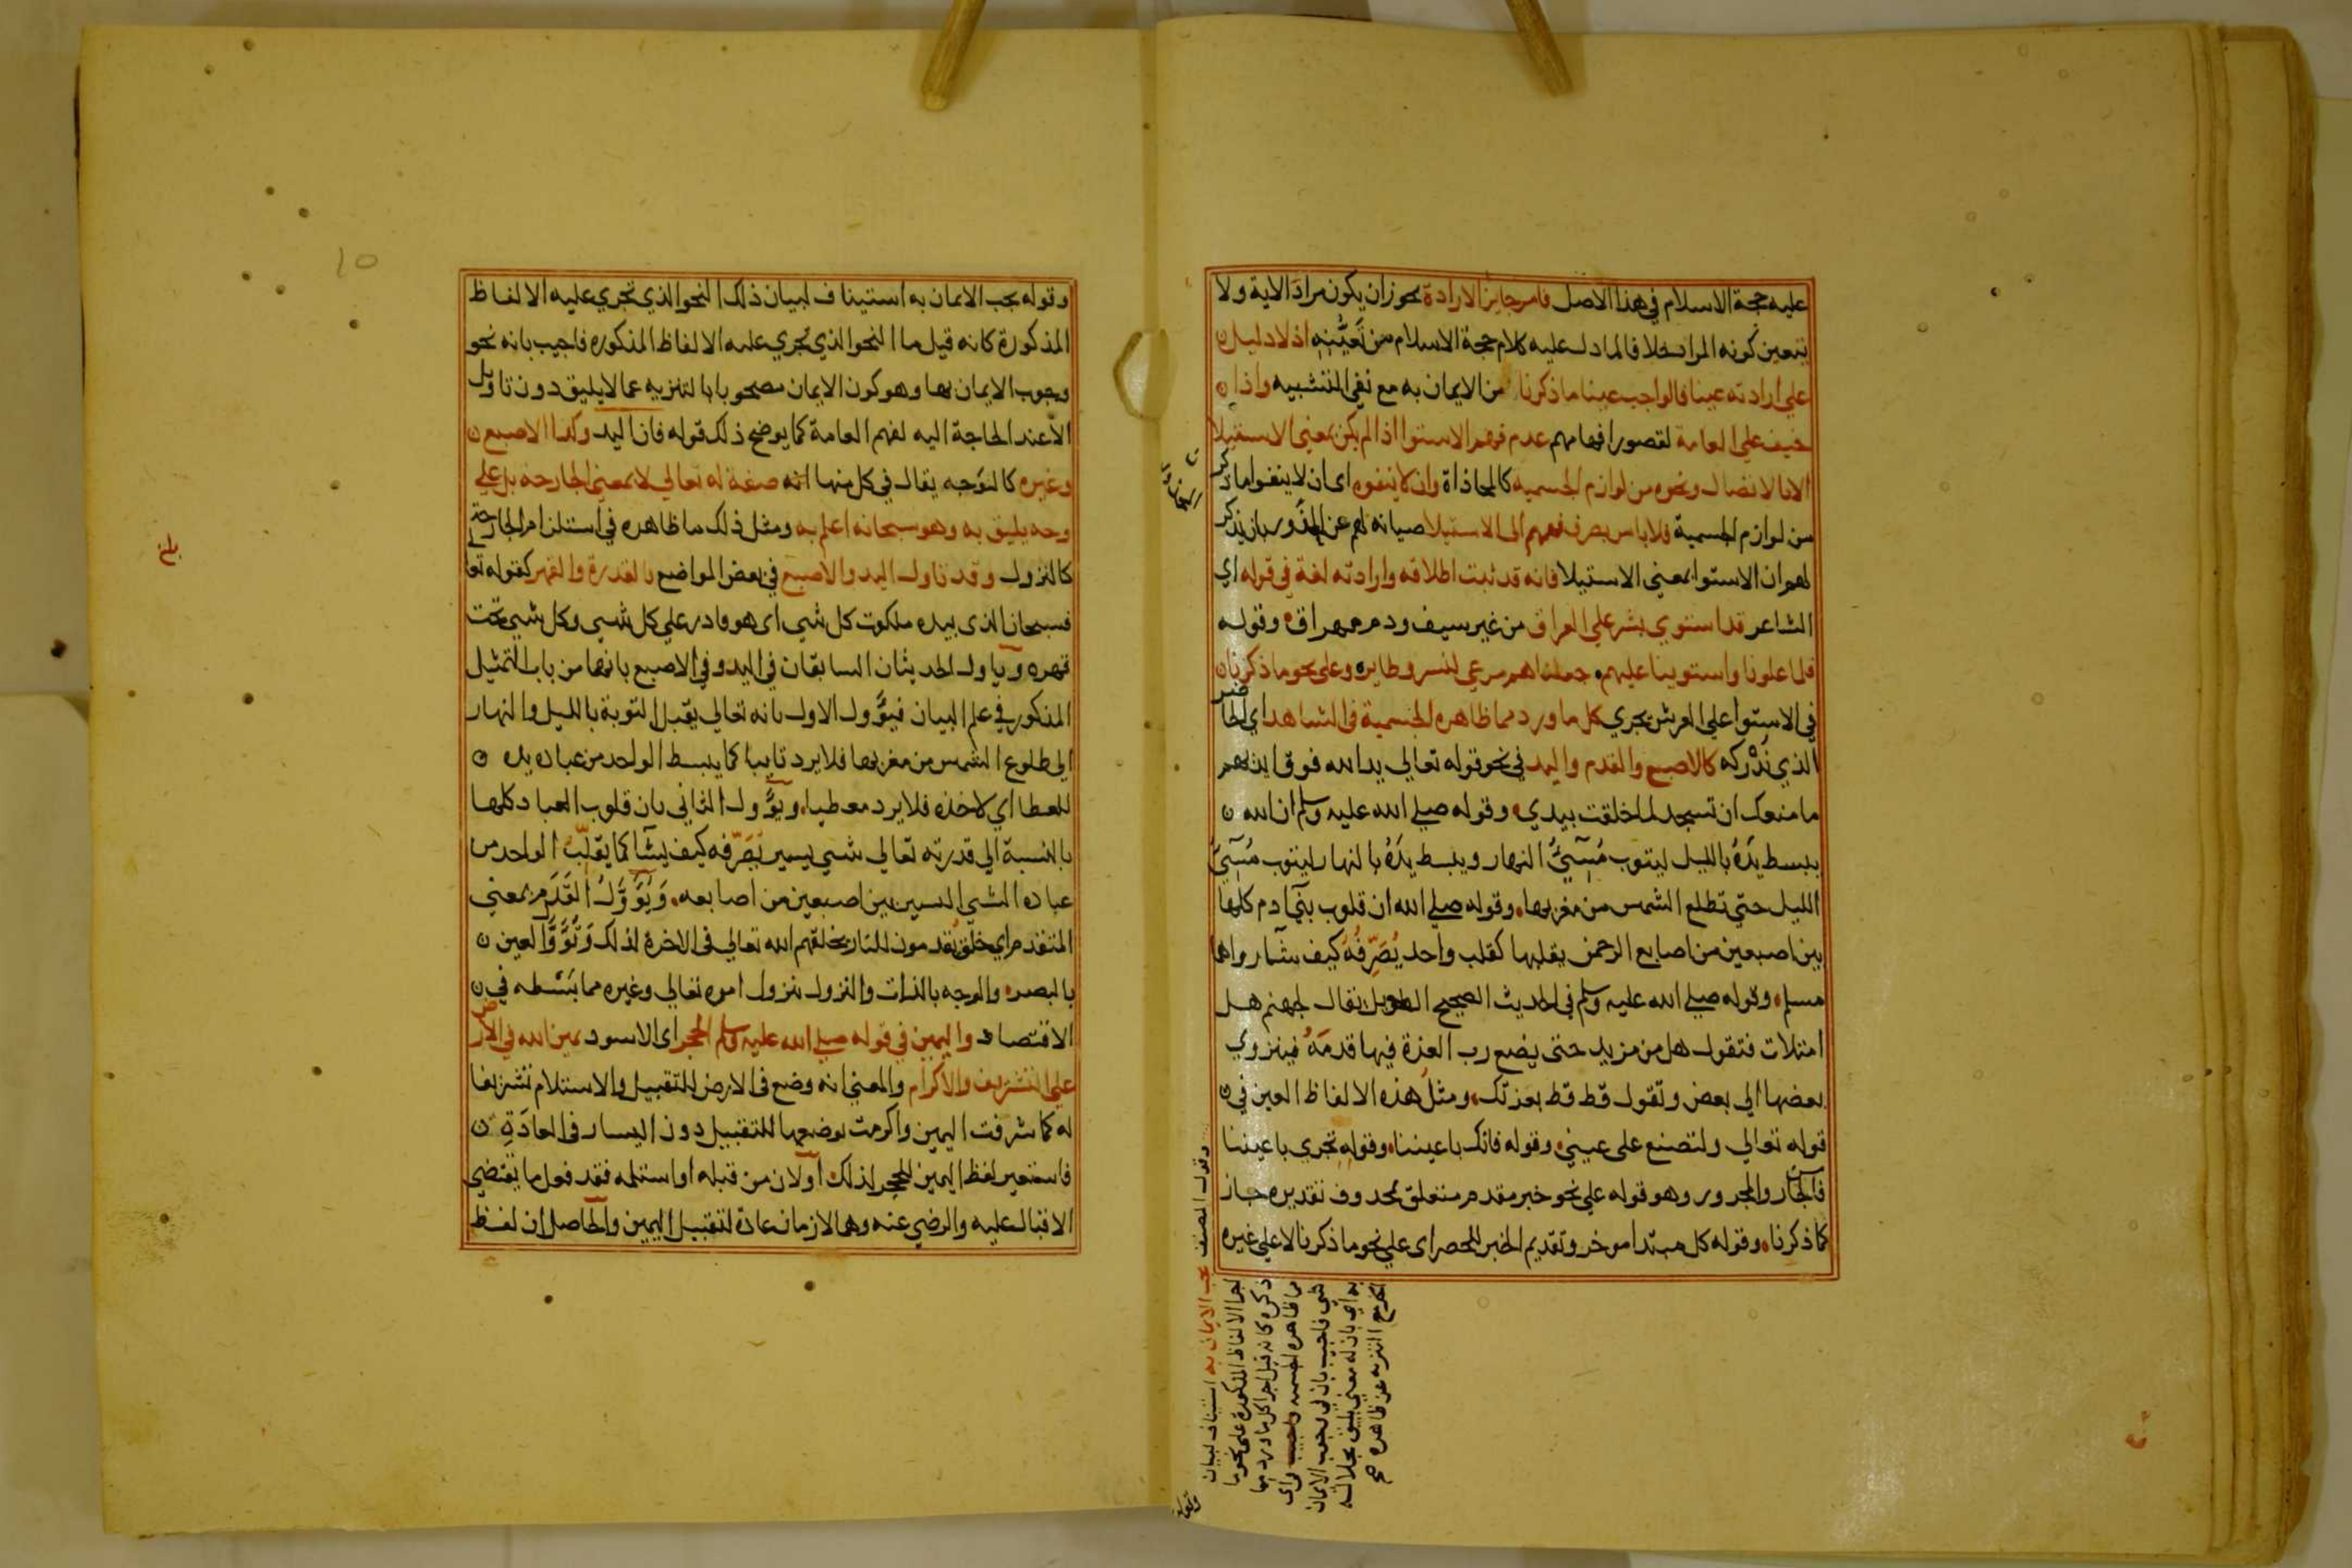 عليه حجة الاسلام في هذا الاصل فامر جايز الارادة يجوز ان يكون مراد الاية ولا
يتعين كونه المراد خلافا لما دل عليه كلام حجة الاسلام من تعيّنه اذ لا دليل
علي ارادته عينا فالواجب عينا ما ذكرنا من الايمان به مع نفي التشبيه واذا
خيف علي العامة لقصور افهامهم عدم فهم الاستوا اذا لم يكن بمعني الاستيلا
الا بالاتصال ونحوه من لوازم الجسمية كالمحاذاة وان لا ينفوه اي ان لا ينفوا ما ذكر
من لوازم الجسمية فلا باس بصرف فهمهم الي الاستيلا صيانة لهم عن المحذور بان يذكر
لهم ان الاستوا بمعني الاستيلا فانه قد ثبت اطلاقه وارادته لغة في قوله اي
الشاعر قد استوي بشر علي العراق من غير سيف ودم مهراق وقوله
فلما علونا واستوينا عليهم جعلناهم مرعي لنسر وطاير وعلي نحو ما ذكرنا
في الاستوا علي العرش يجري كل ما ورد مما ظاهره الجسمية في الشاهد اي الحاضر
الذي نُدْركه كالاصبع والقدم واليد في نحو قوله تعالي يد الله فوق ايديهم
ما منعك ان تسجد لما خلقت بيدي وقوله صلي الله عليه وسلم ان الله
يبسط يَدَهُ بالليل ليتوب مُسِيُّ النهار ويبسط يَدَهُ بالنهار ليتوب مُسِيُّ
الليل حتي تطلع الشمس من مغربها وقوله صلي الله ان قلوب بني ادم كلها
بين اصبعين من اصابع الرحمن يقلبها كقلب واحد يُصَرِّفُهُ كيف يشا رواها
مسلم وقوله صلي الله عليه وسلم في الحديث الصحيح الطويل يقال لجهنم هل
امتلات فتقول هل من مزيد حتي يضع رب العزة فيها قدمَهُ فينزوي
بعضها الي بعض وتقول قط قط بعزتك ومثل هذه الالفاظ العين في
قوله تعالي ولتصنع علي عيني وقوله فانك باعيننا وقوله تجري باعيننا
فالجار والمجرور وهو قوله علي نحو خبر مقدم متعلق بمحذوف تقديره جاز
كما ذكرنا وقوله كل مبتدا موخر وتقديم الخبر للحصر اي علي نحو ما ذكرنا لا علي غيره
وقول المصنف يجب الايمان به استيناف لبيان
اجرا الالفاظ المذكورة علي نحو ما
ذكره كانه قيل اجرا كل ما ورد مما
ما ظاهره الجسمية واي
شي فاجيب بان في وجوب الايمان
به اي بان له معني يليق بجلاله
مع التنزيه عن ظاهره صح
وقوله
وقوله يجب الايمان به استيناف لبيان ذلك النحو الذي تجري عليه الالفاظ
المذكورة كانه قيل ما النحو الذي تجري عليه الالفاظ المذكوره فاجيب بانه نحو
وجوب الايمان بها وهو كون الايمان مصحوبا بالتنزيه عما لا يليق دون تاويل
الا عند الحاجة اليه لفهم العامة كما يوضح ذلك قوله فان اليد وكذا الاصبع
وغيره كالوجه يقال في كل منها انه صفة له تعالي لا بمعني الجارحة بل علي
وجه يليق به وهو سبحانه اعلم به ومثل ذلك ما ظاهره في استلزام الجارحة
كالنزول وقد تاول اليد والاصبع في بعض المواضع بالقدرة والقهر كقوله تعا
فسبحان الذي بيده ملكوت كل شي اي هو قادر علي كل شي وكل شي تحت
قهره وياول الحديثان السابقان في اليد وفي الاصبع بانها من باب التمثيل
المذكور في علم البيان فيُؤَول الاول بانه تعالي يقبل التوبة بالليل والنهار
الي طلوع الشمس من مغربها فلا يرد تايبا كما يبسط الواحد من عباده يده
للعطا اي لاخذه فلا يرد معطيا ويُؤَول الثاني بان قلوب العباد كلها
بالنسبة الي قدرته تعالي شي يسير يُصَرِّفه كيف يشا كما يقلّب الواحد من
عباده الشي اليسير بين اصبعين من اصابعه وَيُؤَوَّلُ القَدَم بمعني
المتقدم اي خلق يُقدمون للنار يخلقهم الله تعالي في الاخرة لذلك وتُؤَوَّل العين
بالبصر والوجه بالذات والنزول بنزول امره تعالي وغيره مما بَسْطه في
الاقتصاد واليمين في قوله صلي الله عليه وسلم الحجر اي الاسود يمين الله في الارض
علي التشريف والاكرام والمعني انه وضع في الارض للتقبيل والاستلام تشريفا
له كما شرفت اليمين واكرمت بوضعها للتقبيل دون اليسار في العادَةِ
فاستعير لفظ اليمين للحجر لذلك او لان من قبله او استلمه فقد فعل ما يقتضي
الاقبال عليه والرضي عنه وهما لازمان عادة لتقبيل اليمين والحاصل ان لفظ
بلغ
10